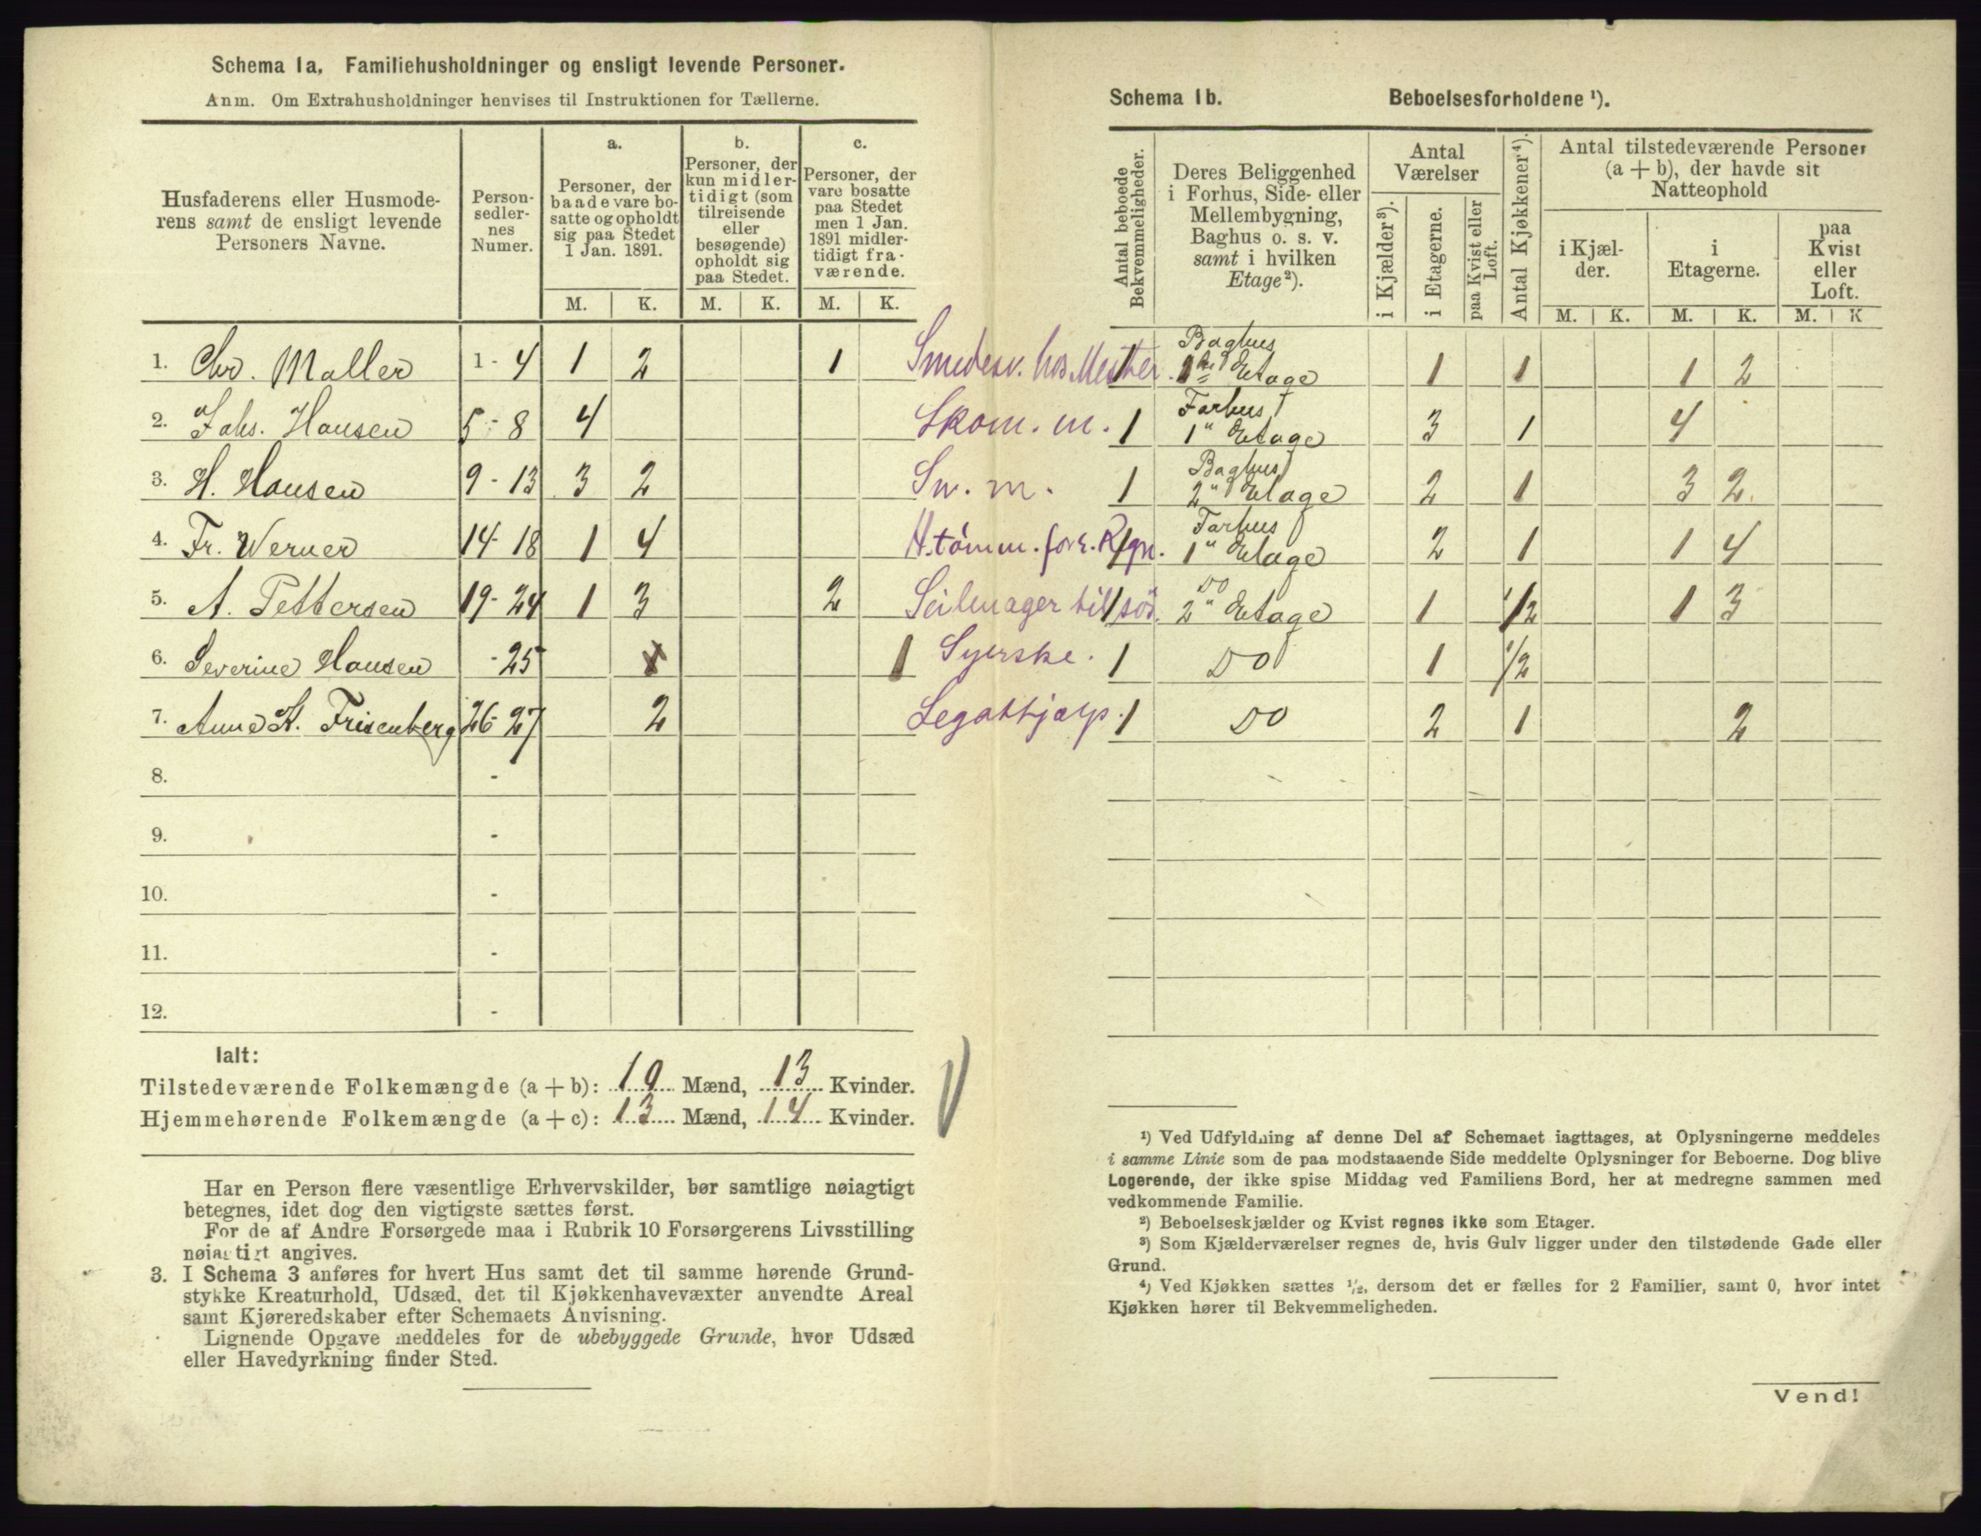 Schema 1a. Familiehusholdninger og ensligt levende Personer.
Anm. Om Extrahusholdninger henvises til Instruktionen for Tællerne.
Husfaderens eller Husmode-
rens samt de ensligt levende
Personers Navne.
Person-
sedler-
nes
Numer.
a.
Personer, der
baade vare bo-
satte og opholdt
sig paa Stedet
1 Jan. 1891.
b.
Personer, der
kun midler-
tidigt (som
tilreisende
eller
besøgende)
opholdt sig
paa Stedet.
c.
Personer, der
vare bosatte
paa Stedet
men 1 Jan.
1891 midler-
tidigt fra-
værende.
M. K. M. K. M. K.
1. Chr. Møller 1 - 4 1 2 1 Smedesv. hos Mester.
2. Johs. Hansen 5 - 8 4 Skom. m.
3. H. Hansen 9 - 13 3 2 Sn. m.
4. Fr. Werner 14 - 18 1 4 H. tömm. for e. Rgn.
5. A. Pettersen 19 - 24 1 3 2 Seilmager tilsös.
6. Severine Hansen - 25 1 Syerske.
7. Anne K. Frisenberg 26 - 27 2 Legathjælp.
8. -
9. -
10. -
11. -
12. -
Ialt:
Tilstedeværende Folkemængde (a + b): 10 Mænd, 13 Kvinder.
Hjemmehørende Folkemængde (a + c): 13 Mænd, 14 Kvinder.
Har en Person flere væsentlige Erhvervskilder, bør samtlige nøiagtigt
betegnes, idet dog den vigtigste sættes først.
For de af Andre Forsørgede maa i Rubrik 10 Forsørgerens Livsstilling
nøiagtigt angives.
3. I Schema 3 anføres for hvert Hus samt det til samme hørende Grund-
stykke Kreaturhold, Udsæd, det til Kjøkkenhavevæxter anvendte Areal
samt Kjøreredskaber efter Schemaets Anvisning.
Lignende Opgave meddeles for de ubebyggede Grunde, hvor Udsæd
eller Havedyrkning finder Sted.
Schema 1b. Beboelsesforholdene ¹).
Antal beboede
Bekvemmeligheder.
Deres Beliggenhed
i Forhus, Side- eller
Mellembygning,
Baghus o. s. v.
samt i hvilken
Etage²).
Antal
Værelser
i Kjælder³).
i Etagerne.
paa Kvist eller
Loft.
Antal Kjøkkener⁴).
Antal tilstedeværende Personer
(a + b), der havde sit
Natteophold
i Kjæl-
der.
i
Etagerne.
paa
Kvist
eller
Loft.
M. K. M. K. M. K
1 Baghus
1ste Etage 1 1 1 2
1 Forhus
1" Etage 3 1 4
1 Baghus
2" Etage 2 1 3 2
1 Forhus
1" Etage 2 1 1 4
1 Do
2" Etage 1 1/2 1 3
1 Do 1 1/2
1 Do 2 1 2
¹) Ved Udfyldning af denne Del af Schemaet iagttages, at Oplysningerne meddeles
i samme Linie som de paa modstaaende Side meddelte Oplysninger for Beboerne. Dog blive
Logerende, der ikke spise Middag ved Familiens Bord, her at medregne sammen med
vedkommende Familie.
²) Beboelseskjælder og Kvist regnes ikke som Etager.
³) Som Kjælderværelser regnes de, hvis Gulv ligger under den tilstødende Gade eller
Grund.
⁴) Ved Kjøkken sættes ½, dersom det er fælles for 2 Familier, samt 0, hvor intet
Kjøkken hører til Bekvemmeligheden.
Vend!